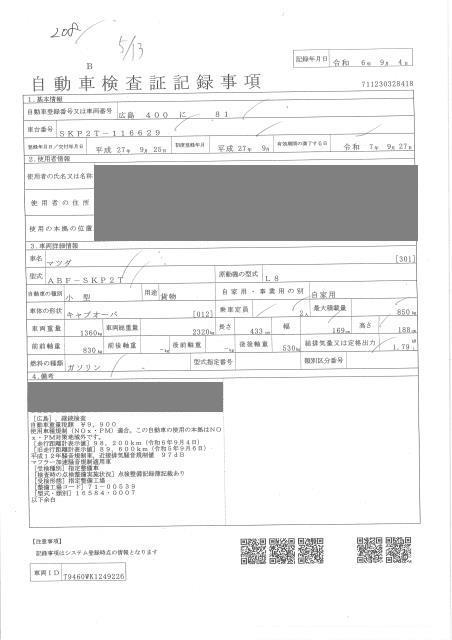 2082
5/13
B
自動車検査証記録事項
記録年月日 令和 6年 9月 4日
711230328418
1.基本情報
自動車登録番号又は車両番号 広島 400 に 81
車台番号 SKP2T-116629
登録年月日/交付年月日 平成 27年 9月 25日 初度登録年月 平成 27年 9月 有効期間の満了する日 令和 7年 9月 27日
2.使用者情報
使用者の氏名又は名称
使用者の住所
使用の本拠の位置
3.車両詳細情報
車名 マツダ [301]
型式 ABF-SKP2T 原動機の型式 L8
自動車の種別 小型 用途 貨物 自家用・事業用の別 自家用
車体の形状 キャブオーバ [012] 乗車定員 2人 最大積載量 850kg
車両重量 1360kg 車両総重量 2320kg 長さ 433cm 幅 169cm 高さ 188cm
前前軸重 830kg 前後軸重 -kg 後前軸重 -kg 後後軸重 530kg 総排気量又は定格出力 1.79
燃料の種類 ガソリン 型式指定番号 類別区分番号
4.備考
[広島],継続検査
自動車重量税額 ¥9,900
使用車種規制(NOx・PM)適合,この自動車の使用の本拠はNO
x・PM対策地域外です。
[走行距離計表示値]98,200km(令和6年9月4日)
[旧走行距離計表示値]89,600km(令和5年9月6日)
平成12年騒音規制車,近接排気騒音規制値 97dB
マフラー加速騒音規制適用車
[受検種別]指定整備車
[検査時の点検整備実施状況]点検整備記録簿記載あり
[受検形態]指定整備工場
[整備工場コード]71-00539
[型式・類別]16584・0007
以下余白
【注意事項】
記録事項はシステム登録時点の情報となります
車両ID 79460WK1249226